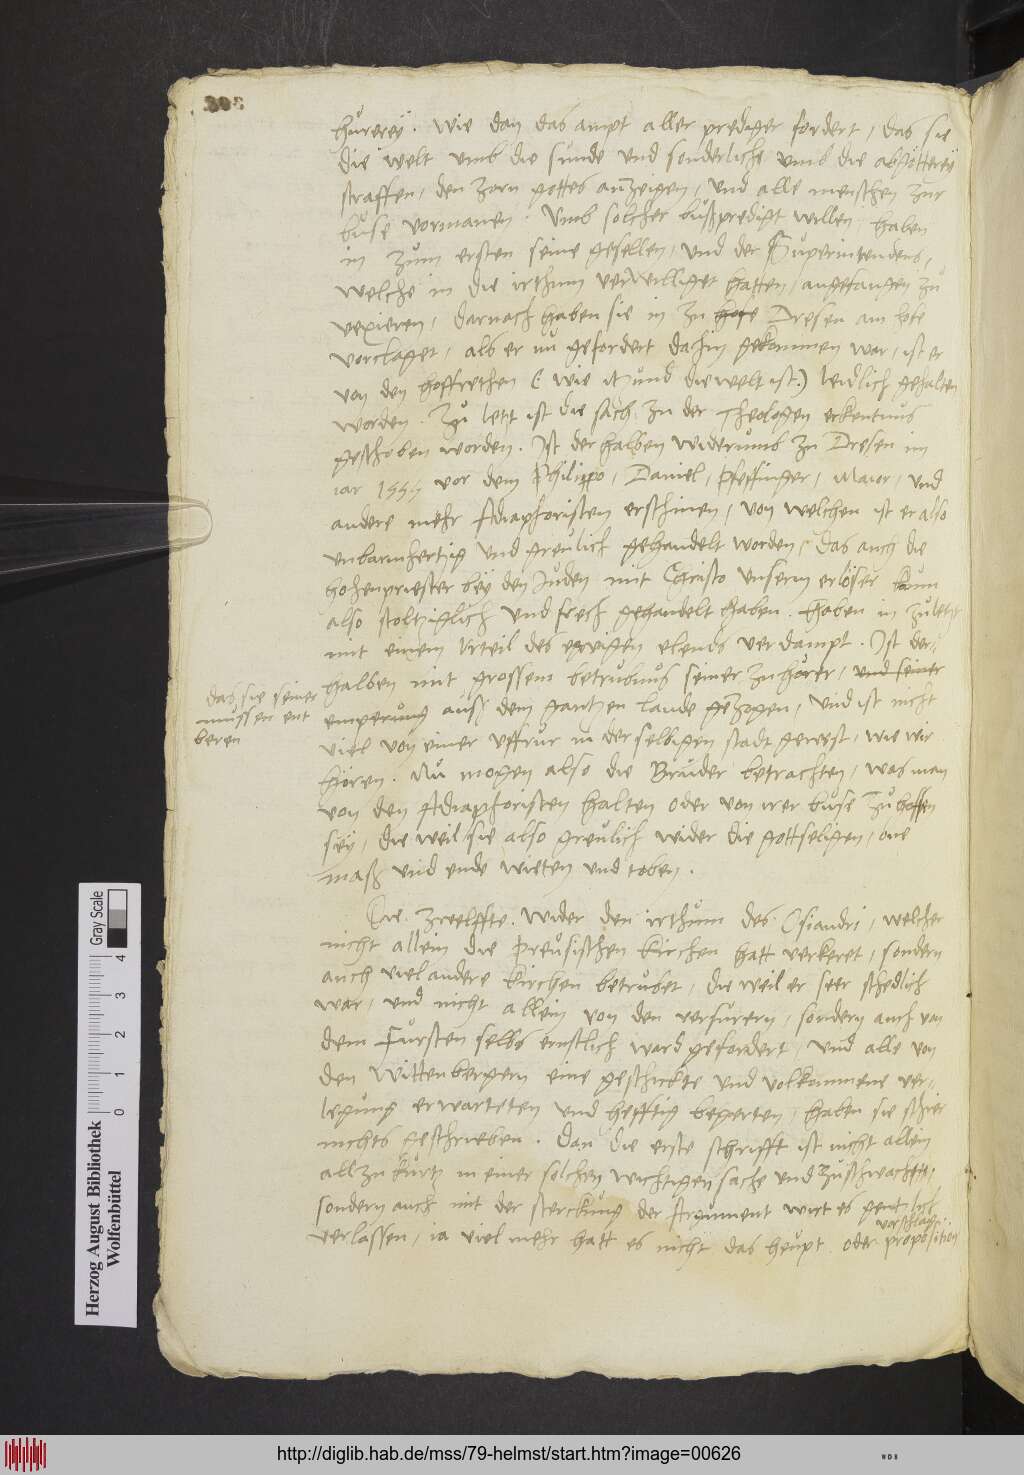 303
hurereÿ. Wie dan das ampt aller prediger fordert, das sie
die welt umb die sunde und sonderliche umb die abgötterëÿ
straffen, den zorn gottes anzeigen, und alle menschen zur
buse vormanen. Umb solcher bußpredigt willen, haben
in zum ersten seine gesellen, und der Superintendens,
welche in die irthum verwilliget hatten, angefangen zu
vexieren, darnach haben sie in zu hofe Dresen am hofe
vorclaget, alß er nu gefordert dahin gekommen war, ist er
von den hoffrethen (wie itzund die welt ist) leidlich gehalten
worden. Zu letzt ist die sach zu der Theologen erkentnus
geschoben worden. Ist derhalben widerumb zu Dresen im
iar 1555 vor dem Philippo, Daniel, Pfeffinger, Maior, und
andere mehr Adiaphoristen erschinen, von welchen ist er also
unbarmhertzig und greulich gehandelt worden, das auch die
hohenpriester beÿ den Juden mit Christo unserm erlöser kaum
also stoltziglich und frech gehandelt haben. Haben in zuletzt
mit einem Urteil des ewigen elends verdampt. Ist der-
halben mit grossem betrubnus seiner zuhörer, und seiner
das sie seiner
mussen ent
beren
emperung auß dem gantzen lande gezogen, und ist nicht
viel von einer uffrur in der selbigen stadt gewest, wie wir
hören. Nu mogen also die Bruder betrachten, was man
von den Adiaphoristen halten oder von irer buse zu hoffen
seÿ, die weil sie also greulich wider die gottseligen, one
maß und ende wieten und toben.
Die zweelffte. Wider den irthum des Osiandri, welcher
nicht allein die Preusischen kirchen hatt verkeret, sondern
auch viel andere kirchen betrubet, die weil er seer schedlich
war, und nicht allein von den verfurern, sondern auch von
dem Fursten selbs ernstlich ward gefordert, und alle von
den Wittenbergern eine geschickte und volkommene ver-
legung erwarteten und hefftig begerten, haben sie schier
nichts geschrieben. Dan die erste schrifft ist nicht allein
allzu kurtz in einer solchen wichtigen sache und zuschwachett,
sondern auch mit der sterckung der Argument wirt es gentzlich
vorschlag
verlassen, ia viel mehr hatt es nicht das heupt oder proposition
Herzog August Bibliothek
Wolfenbüttel
0 1 2 3 4
Gray Scale
http://diglib.hab.de/mss/79-helmst/start.htm?image=00626
WDB